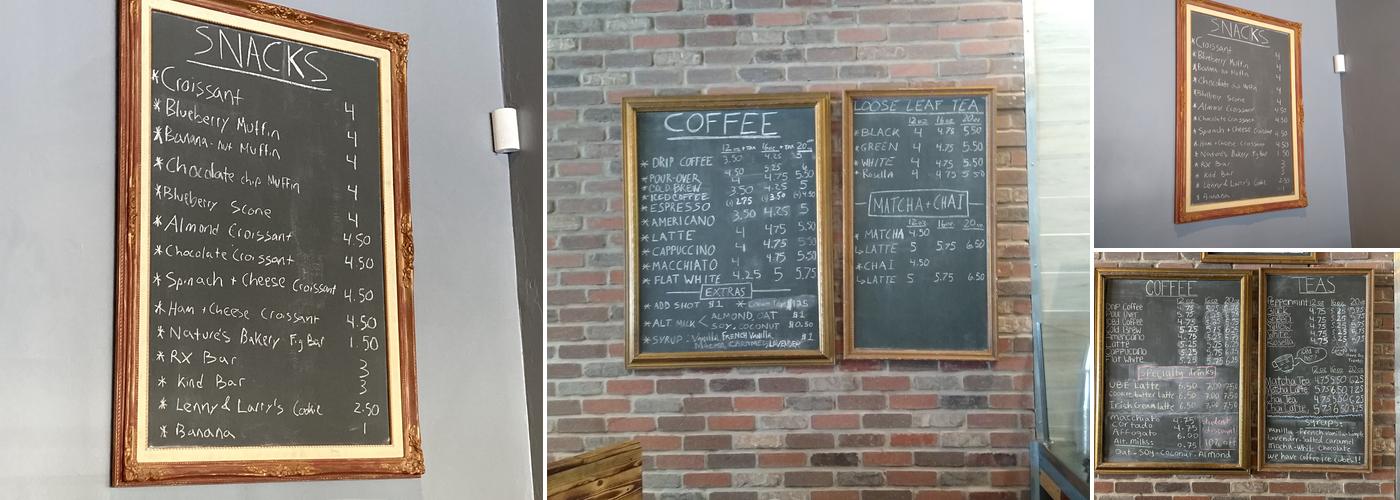 SNACKS
* Croissant 4
* Blueberry Muffin 4
* Banana-nut Muffin 4
* Chocolate chip Muffin 4
* Blueberry Scone 4
* Almond Croissant 4.50
* Chocolate Croissant 4.50
* Spinach + Cheese Croissant 4.50
* Ham + Cheese Croissant 4.50
* Nature's Bakery Fig Bar 1.50
* RX Bar 3
* Kind Bar 3
* Lenny & Larry's Cookie 2.50
* Banana 1
COFFEE
12 oz + TAX 16oz + TAX 20oz
* DRIP COFFEE 3.50 4.25 5
* POUR-OVER 4.50 5.25 6
* COLD BREW 4 4.75 5.50
* ICED COFFEE 3.50 4.25 5
* ESPRESSO 2.75 3.50 4.50
* AMERICANO 3.50 4.25 5
* LATTE 4 4.75 5.50
* CAPPUCCINO 4 4.75 5.50
* MACCHIATO 4 4.75 5.50
* FLAT WHITE 4.25 5 5.75
EXTRAS
* ADD SHOT $1
* ALT MILK < ALMOND, OAT $1
SOY, COCONUT $0.50
* SYRUP: Vanilla, FRENCH Vanilla, $1
MOCHA, CARAMEL, LAVENDER
LOOSE LEAF TEA
12oz 16oz 20oz
* BLACK 4 4.75 5.50
* GREEN 4 4.75 5.50
* WHITE 4 4.75 5.50
* Rosella 4 4.75 5.50
MATCHA + CHAI
12oz 16oz 20oz
* MATCHA 4.50
LATTE 5 5.75 6.50
* CHAI 4.50
LATTE 5 5.75 6.50
SNACKS
* Croissant 4
* Blueberry Muffin 4
* Banana-nut Muffin 4
* Chocolate chip Muffin 4
* Blueberry Scone 4
* Almond Croissant 4.50
* Chocolate Croissant 4.50
* Spinach + Cheese Croissant 4.50
* Ham + Cheese Croissant 4.50
* Nature's Bakery Fig Bar 1.50
* RX Bar 3
* Kind Bar 3
* Lenny & Larry's Cookie 2.50
* Banana 1
COFFEE
12oz 16oz 20oz
Drip Coffee 4.75
Pour Over 5.75
Cold Coffee
Cold Brew 5.25
Americano 4.75
Latte
Cappuccino
Flat White
Specialty drinks
UBE Latte 6.50 7.00 7.50
Cookie butter Latte 6.50 7.00 7.50
Irish Cream Latte 6.50 7.00 7.50
Macchiato
Cortado 4.75
Affogato 6.00
Alt. milks: 0.75
student discount 10% off
Oat-Soy-Coconut-Almond
TEAS
Peppermint 12oz 16oz 20oz
Rosella
12oz 16oz 20oz
Matcha Tea 4.75 5.50 6.25
Matcha Latte 5.75 6.50 7.25
Chai Tea 4.75 5.50 6.25
Chai Latte 5.75 6.50 7.25
Syrups:
vanilla-French vanilla
lavender-Salted caramel
mocha-White Chocolate
we have coffee ice cubes!!